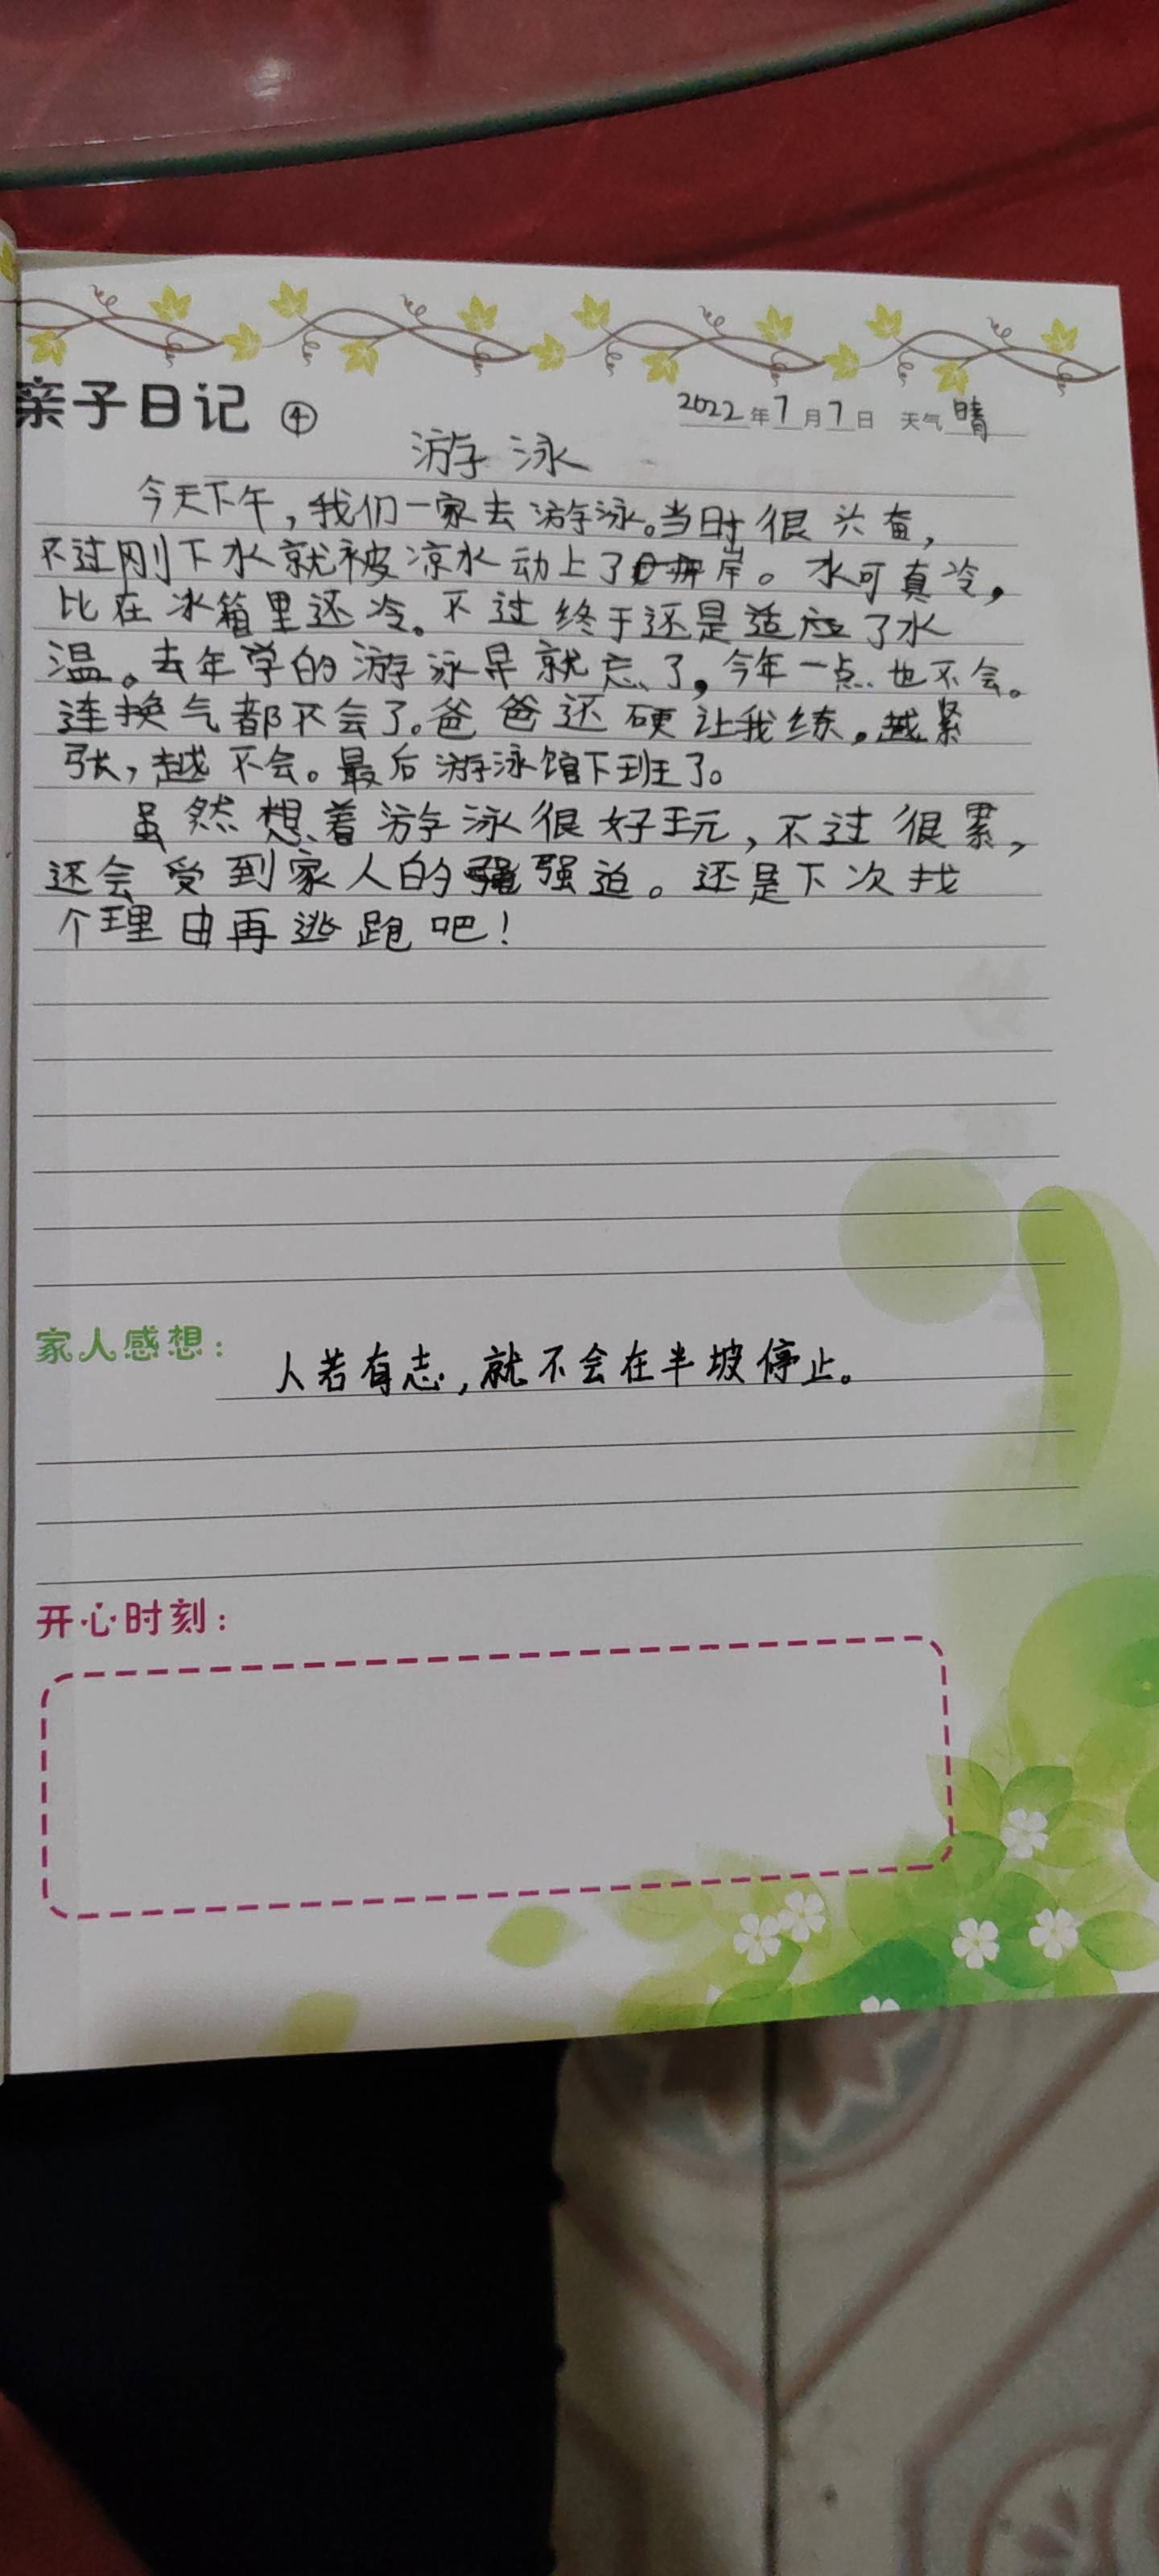 亲子日记 ④
2022年7月7日 天气 晴
游泳
今天下午，我们一家去游泳。当时很兴奋，
不过刚下水就被凉水动上了岸。水可真冷，
比在冰箱里还冷。不过终于还是适应了水
温。去年学的游泳早就忘了，今年一点也不会。
连换气都不会了。爸爸还硬让我练。越紧
张，越不会。最后游泳馆下班了。
虽然想着游泳很好玩，不过很累，
还会受到家人的强迫。还是下次找
个理由再逃跑吧！
家人感想：
人若有志，就不会在半坡停止。
开心时刻：